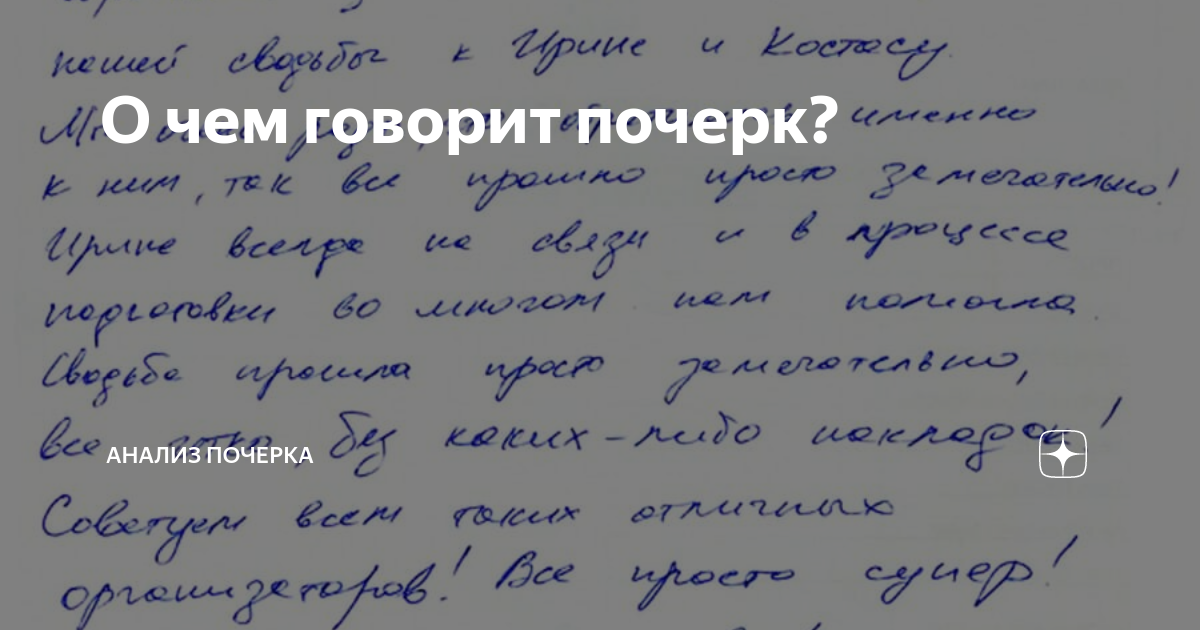 нашей свадьбы к Ирине и Костасу.
О чем говорит почерк?
именно
к ним, так все прошло просто замечательно!
Ирине всегда на связи и в процессе
подготовки во многом нам помогла.
Свадьба прошла просто замечательно,
все четко, без каких-либо накладок!
АНАЛИЗ ПОЧЕРКА
Советуем всем таких отличных
организаторов! Все просто супер!